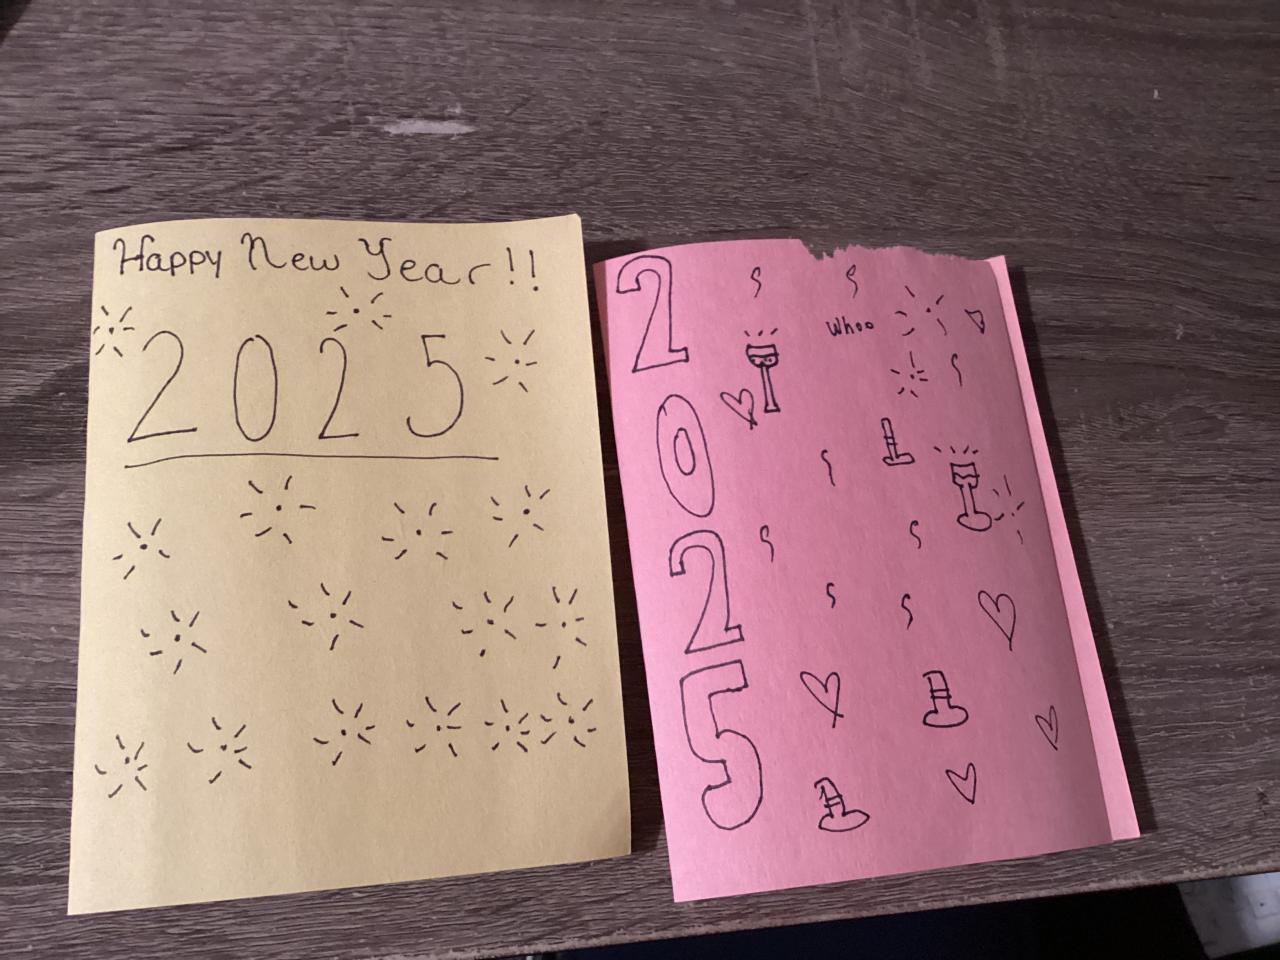 Happy New Year!!
2025
2
0
2
5
Whoo